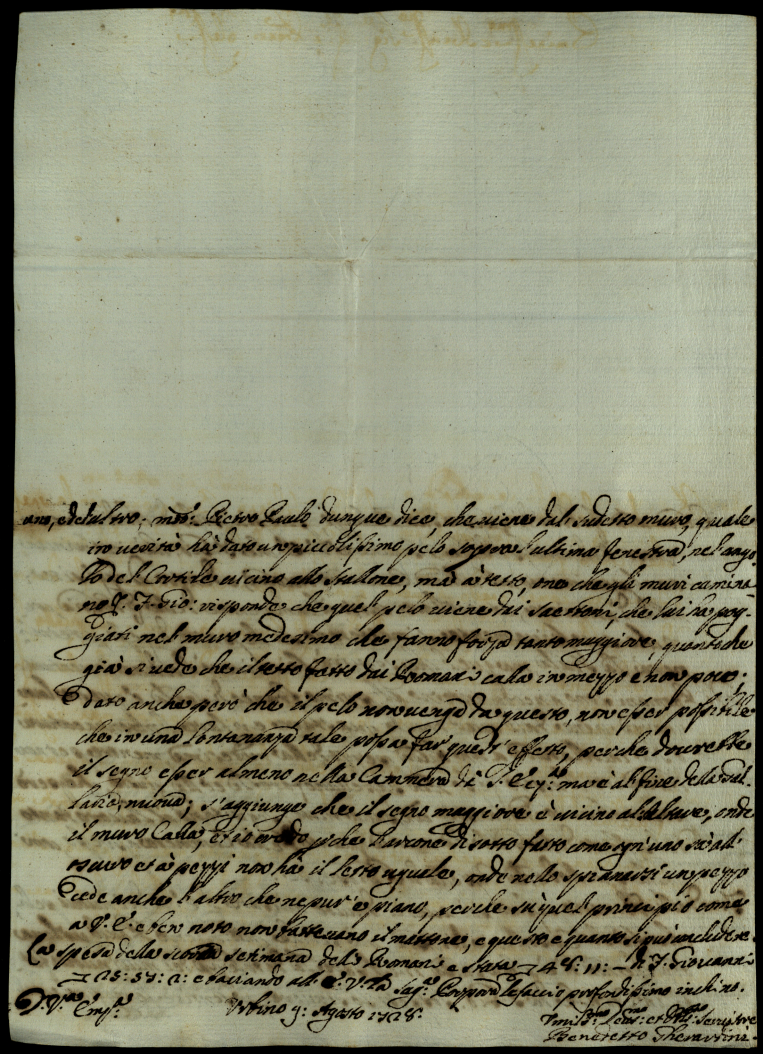 uno, e dell'altro; mro: Pietro Paulo dunque dice, che viene dal sudetto muro, quale
in verità hà dato un piccolissimo pelo sopra l'ultima fenestra, nel ango
lo del Cortile vicino allo Stallone, mà à tetto, one che gli muri camina
no; F. Gio: risponde che quel pelo viene dai saettoni, che lui ha pog-
giati nel muro medesimo che fanno forza tanto maggiore, quanto che
già si vede che il tetto fatto dai Romani calla in mezzo e non poco;
dato anche però che il pelo non venga da questo, non esser possibile
che in una lontananza tale possa far quest'effetto, perche dourebbe
il segno esser almeno nella Cammera di mà è al fine della
nuoua; s'aggiunge che il segno maggiore è vicino al Altare, onde
il muro Calla, et io credo che di sotto fatto come ogn'uno sà all'
oscuro et à pezzi non hà il letto uguale, onde nello spianarsi un pezzo
cede anche l'altro che nepur è piano, perche sù quel principio come
a V. E. e ben noto non battevano il mattone, e questo e quanto
La spesa della scorsa settimana delli Romani e stata 48: 11: – di F. Giovanni
25: 57: 2: e baciando all' E. V. la Sag: Porpora le faccio profondissimo inchino.
D. V. Em: Urbino 9: Agosto 1728:
Umil: Deu: et Servitore
Benedetto